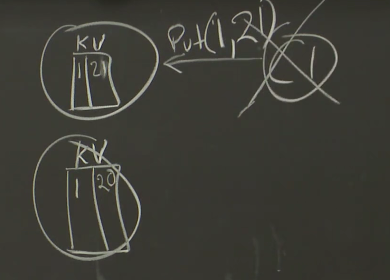 K V
1 21
Put(1,21)
C1
K V
1 20